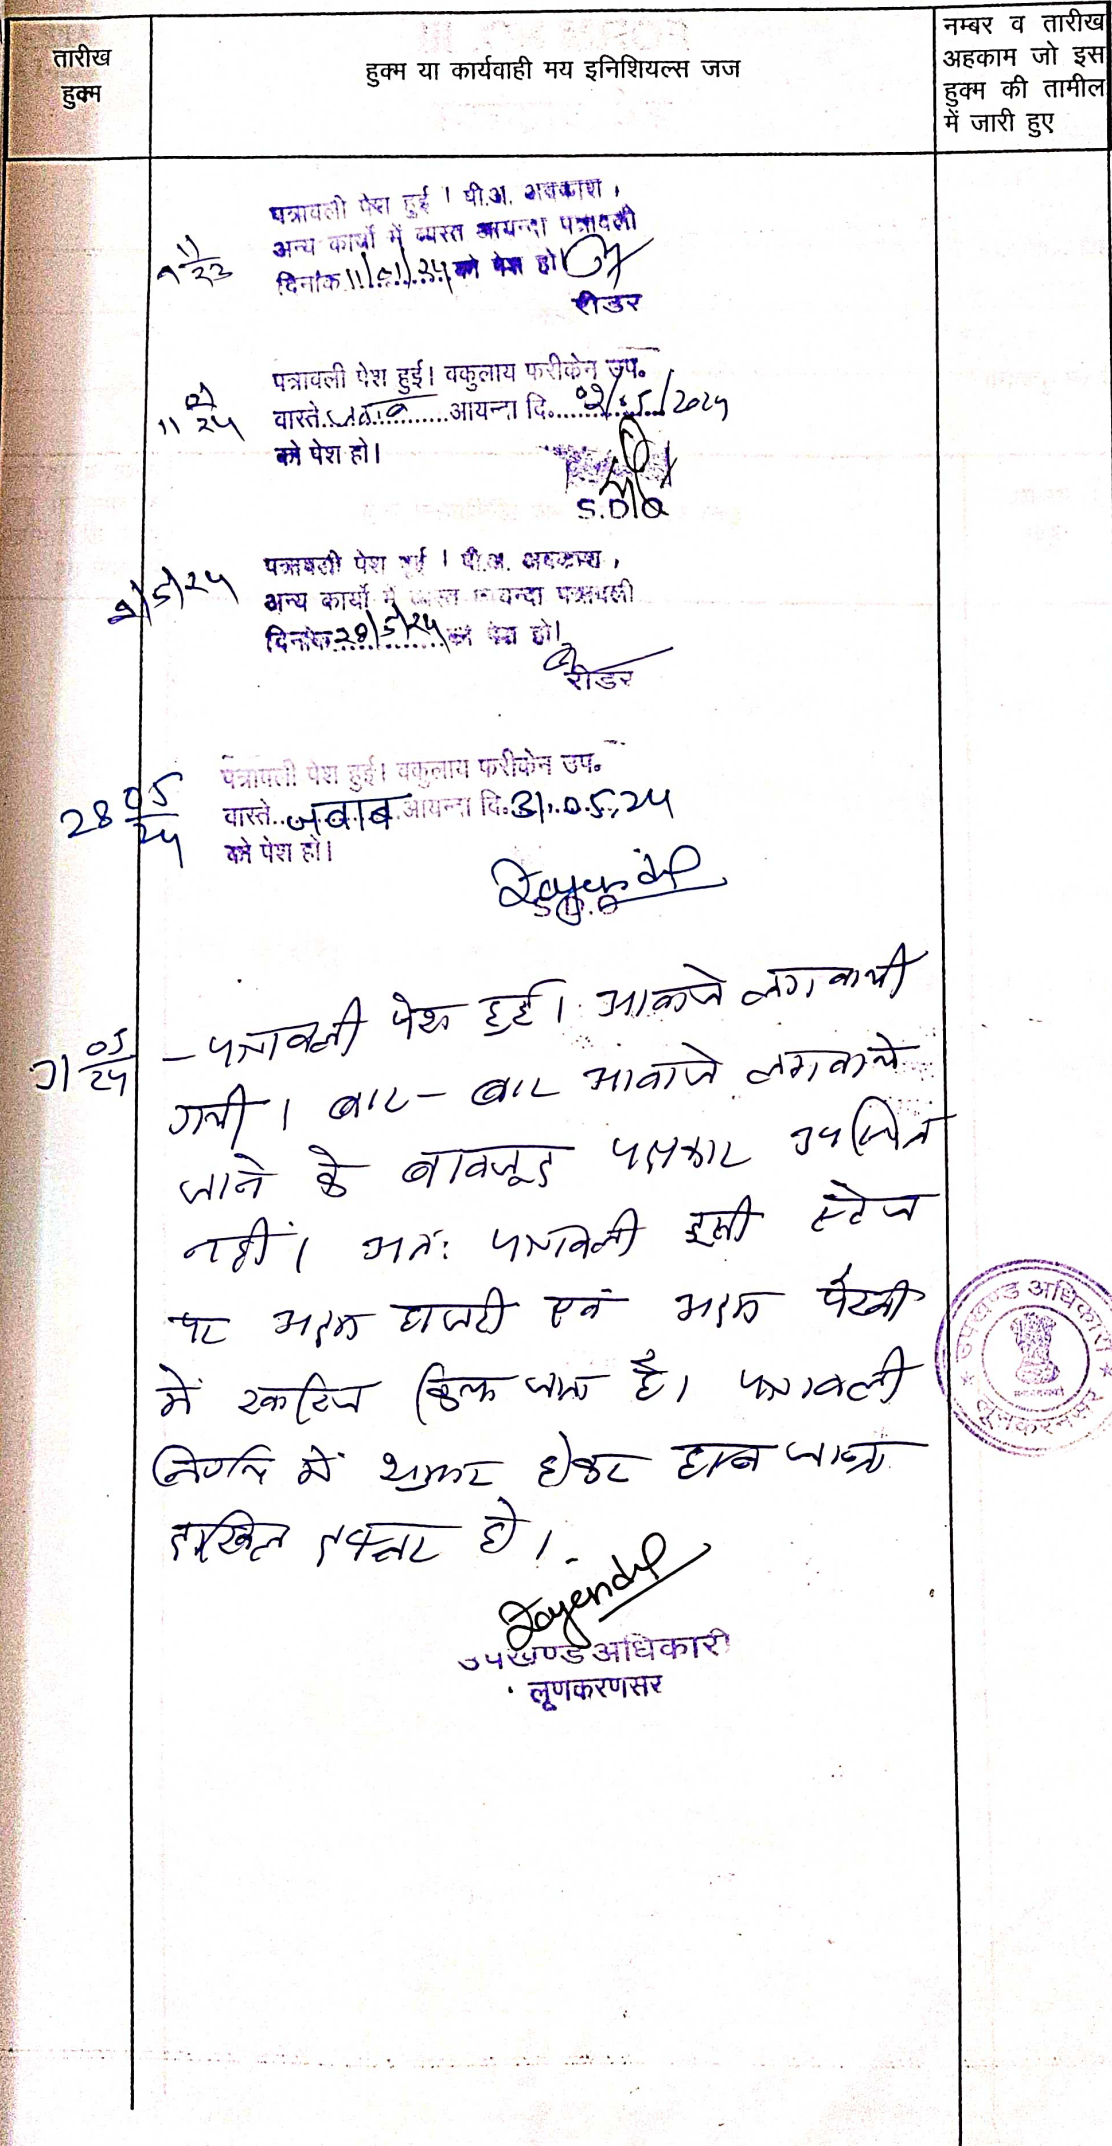 तारीख
हुक्म
हुक्म या कार्यवाही मय इनिशियल्स जज
नम्बर व तारीख
अहकाम जो इस
हुक्म की तामील
में जारी हुए
9 11/23
पत्रावली पेश हुई । पी.अ. अवकाश ,
अन्य कार्यो में व्यस्त आयन्दा पत्रावली
दिनांक 11/01/24 को पेश हो।
रीडर
11 01/24
पत्रावली पेश हुई। वकुलाय फरीकेन उप.
वास्ते जवाब आयन्दा दि. 02/05/2024
को पेश हो।
S.D.O
2/5/24
पत्रावली पेश हुई । पी.अ. अवकाश ,
अन्य कार्यो में व्यस्त आयन्दा पत्रावली
दिनांक 28/5/24 को पेश हो।
रीडर
28 05/24
पत्रावली पेश हुई। वकुलाय फरीकेन उप.
वास्ते जवाब आयन्दा दि. 31.05.24
को पेश हो।
S.D.O
31 05/24
– पत्रावली पेश हुई। आवाजे लगवायी
गयी । बार – बार आवाजे लगवाये
जाने के बावजूद पक्षकार उपस्थित
नहीं। अतः पत्रावली इसी स्टेज
पर अदम हाजरी एवं अदम पैरवी
में खारिज किया जाता है। पत्रावली
निर्णित में शुमार होकर
दाखिल दफ्तर हो ।
उपखण्ड अधिकारी
लूणकरणसर
उपखण्ड अधिकारी
लूनकरनसर